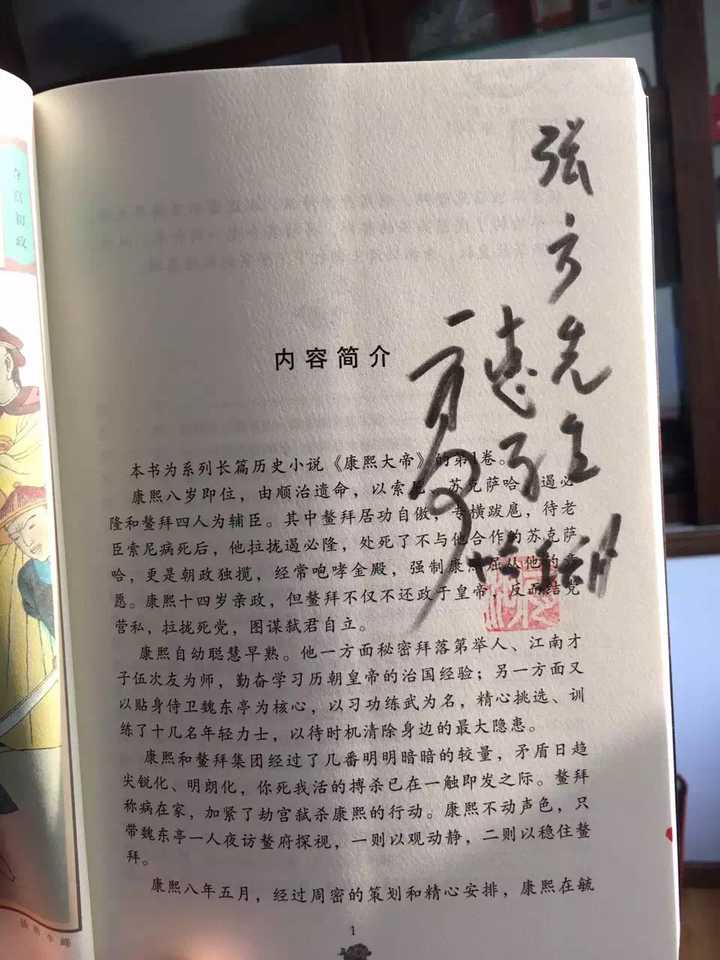 夺宫初政
张方先生
惠存
二月河
内容简介
本书为系列长篇历史小说《康熙大帝》的第1卷。
康熙八岁即位，由顺治遗命，以索尼、苏克萨哈、遏必
隆和鳌拜四人为辅臣。其中鳌拜居功自傲，专横跋扈，待老
臣索尼病死后，他拉拢遏必隆，处死了不与他合作的苏克萨
哈，更是朝政独揽，经常咆哮金殿，强制康熙屈从他的意
愿。康熙十四岁亲政，但鳌拜不仅不还政于皇帝，反而结党
营私，拉拢死党，图谋弑君自立。
康熙自幼聪慧早熟。他一方面秘密拜落第举人、江南才
子伍次友为师，勤奋学习历朝皇帝的治国经验；另一方面又
以贴身侍卫魏东亭为核心，以习功练武为名，精心挑选、训
练了十几名年轻力士，以待时机清除身边的最大隐患。
康熙和鳌拜集团经过了几番明明暗暗的较量，矛盾日趋
尖锐化、明朗化，你死我活的搏杀已在一触即发之际。鳌拜
称病在家，加紧了劫宫弑杀康熙的行动。康熙不动声色，只
带魏东亭一人夜访鳌府探视，一则以观动静，二则以稳住鳌
拜。
康熙八年五月，经过周密的策划和精心安排，康熙在毓
1